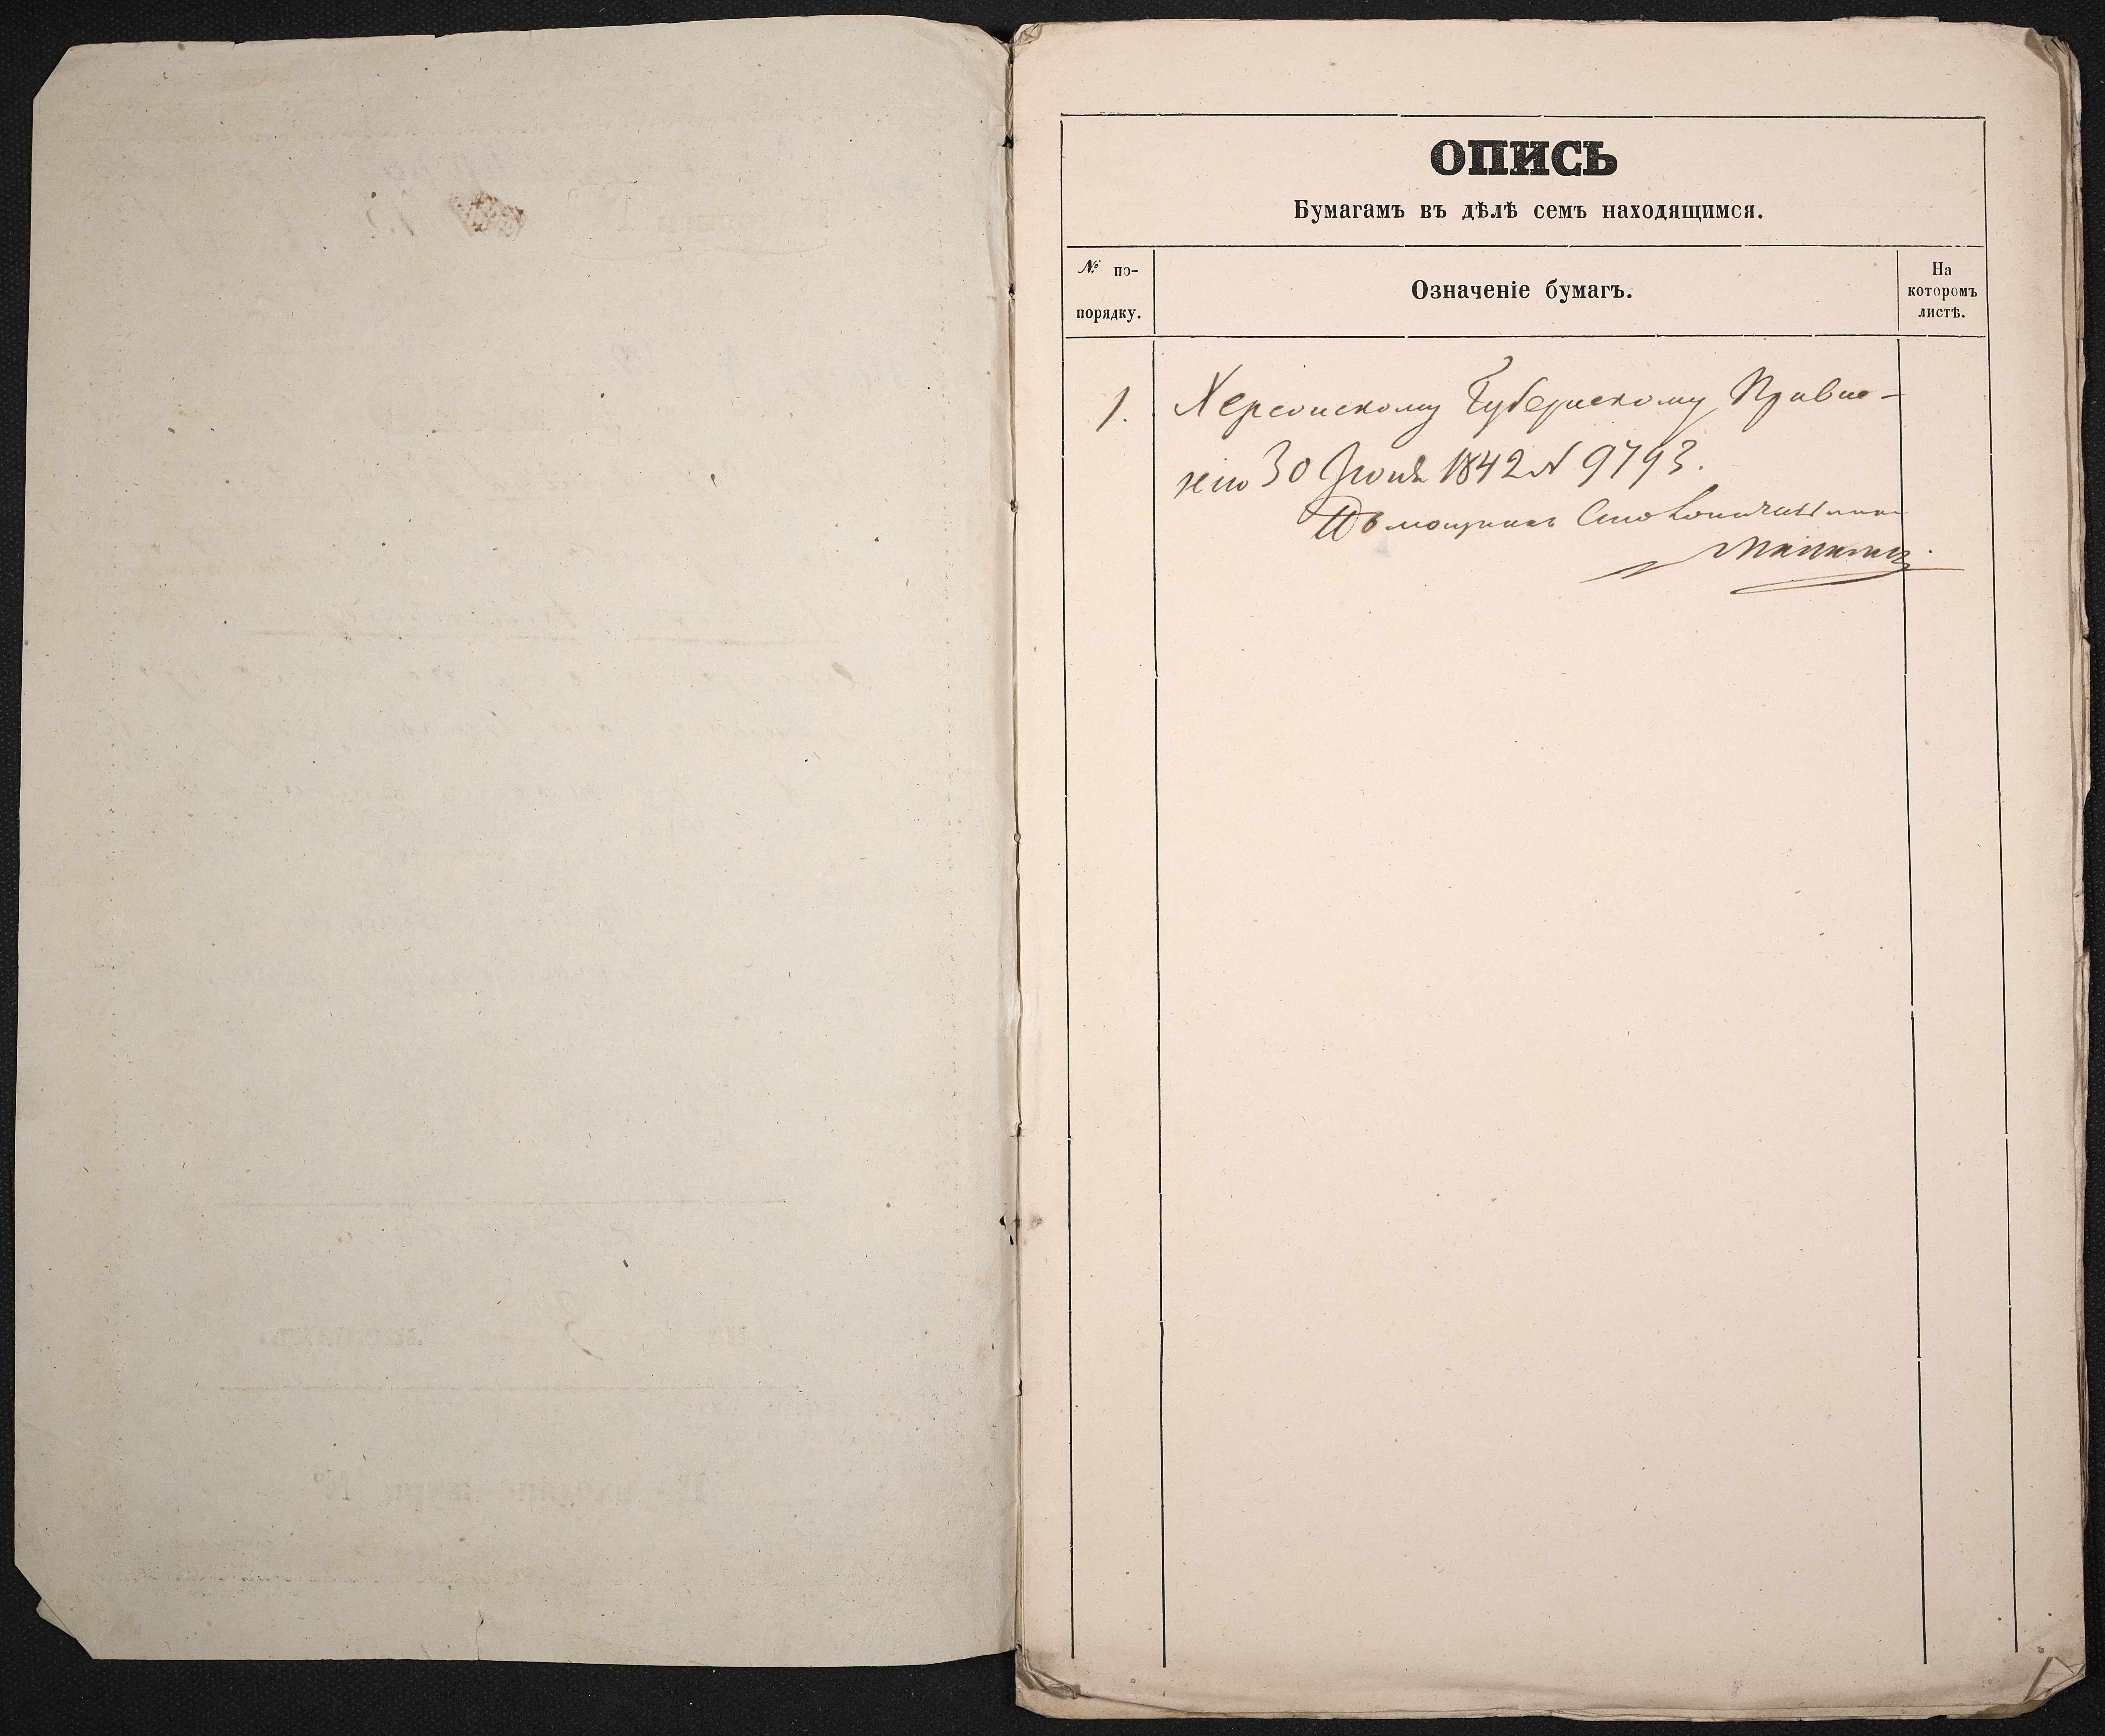 ОПИСЬ
Бумагамъ въ дѣлѣ семъ находящимся.
№ по-
порядку.
Означеніе бумагъ.
На
которомъ
листѣ.
1. Херсонскому Губернскому Правле-
нію 30 Іюня 1842 № 9793.
Помощникъ Столоначальника